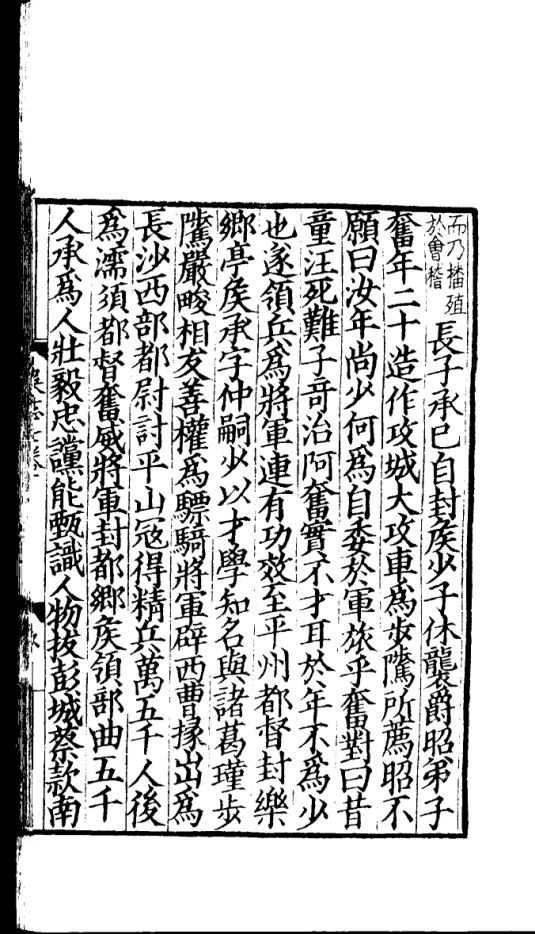 而乃播殖
於會稽
長子承已自封矦少子休襲爵昭弟子
奮年二十造作攻城大攻車爲步隲所薦昭不
願曰汝年尚少何爲自委於軍旅乎奮對曰昔
童汪死難子竒治阿奮實不才耳於年不爲少
也遂領兵爲將軍連有功效至平州都督封樂
鄉亭矦承字仲嗣少以才學知名與諸葛瑾步
隲嚴畯相友善權爲驃騎將軍辟西曹掾出爲
長沙西部都尉討平山冦得精兵萬五千人後
爲濡須都督奮威將軍封都鄉矦領部曲五千
人承爲人壯毅忠讜能甄識人物拔彭城蔡款南